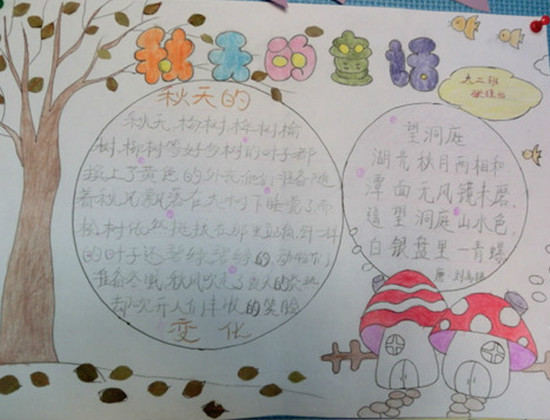 秋天的童话
六二班
秋天的
秋天,杨树梅树榆
树,柳树等好多树的叶子都
换上了黄色的外衣他们准备随
着秋风飘落在大树下睡觉了而
松树依然挺拔在那里站岗,针一样
的叶子还碧绿碧绿的,动物们
准备冬眠,秋风吹走了夏天的炎热
却吹开人们丰收的笑脸
变化
望洞庭
湖光秋月两相和
潭面无风镜未磨,
遥望洞庭山水色,
白银盘里一青螺
唐